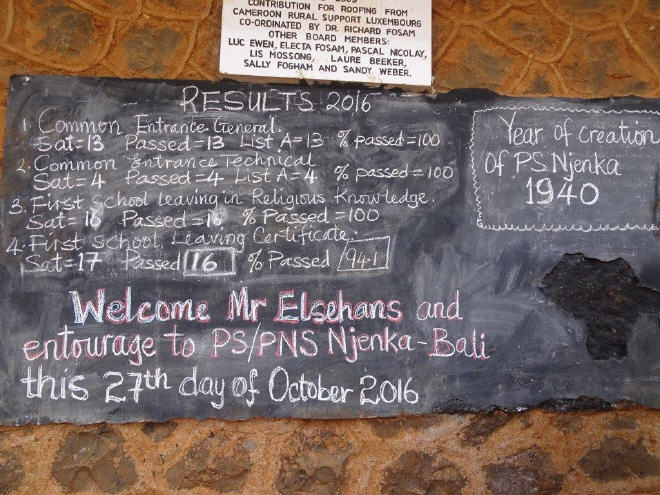 CONTRIBUTION FOR ROOFING FROM
CAMEROON RURAL SUPPORT LUXEMBOURG
CO-ORDINATED BY DR. RICHARD FOSAM
OTHER BOARD MEMBERS:
LUC EWEN, ELECTA FOSAM, PASCAL NICOLAY,
LIS MOSSONG, LAURE BEEKER,
SALLY FOGHAM AND SANDY WEBER.
RESULTS 2016
1. Common Entrance General.
Sat=13 Passed=13 List A=13 % passed=100
2. Common entrance Technical
Sat=4 Passed=4 List A=4 % passed=100
3. First School leaving in Religious Knowledge.
Sat=16 Passed=16 % Passed=100
4. First School Leaving Certificate.
Sat=17 Passed 16 % Passed 94.1
Welcome Mr Elsehans and
entourage to PS/PNS Njenka-Bali
this 27th day of October 2016
Year of creation
Of PS Njenka
1940